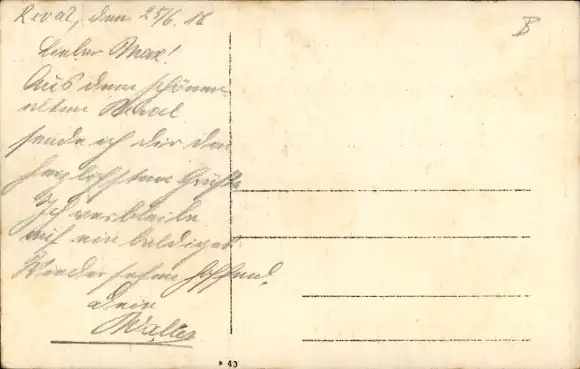 Reval, den 25/6. 18
B
Lieber Max!
Aus dem schönen
alten Reval
sende ich dir die
herzlichsten Grüße
Ich verbleibe
auf ein baldiges
Wiedersehen hoffend.
Dein
Walter
43